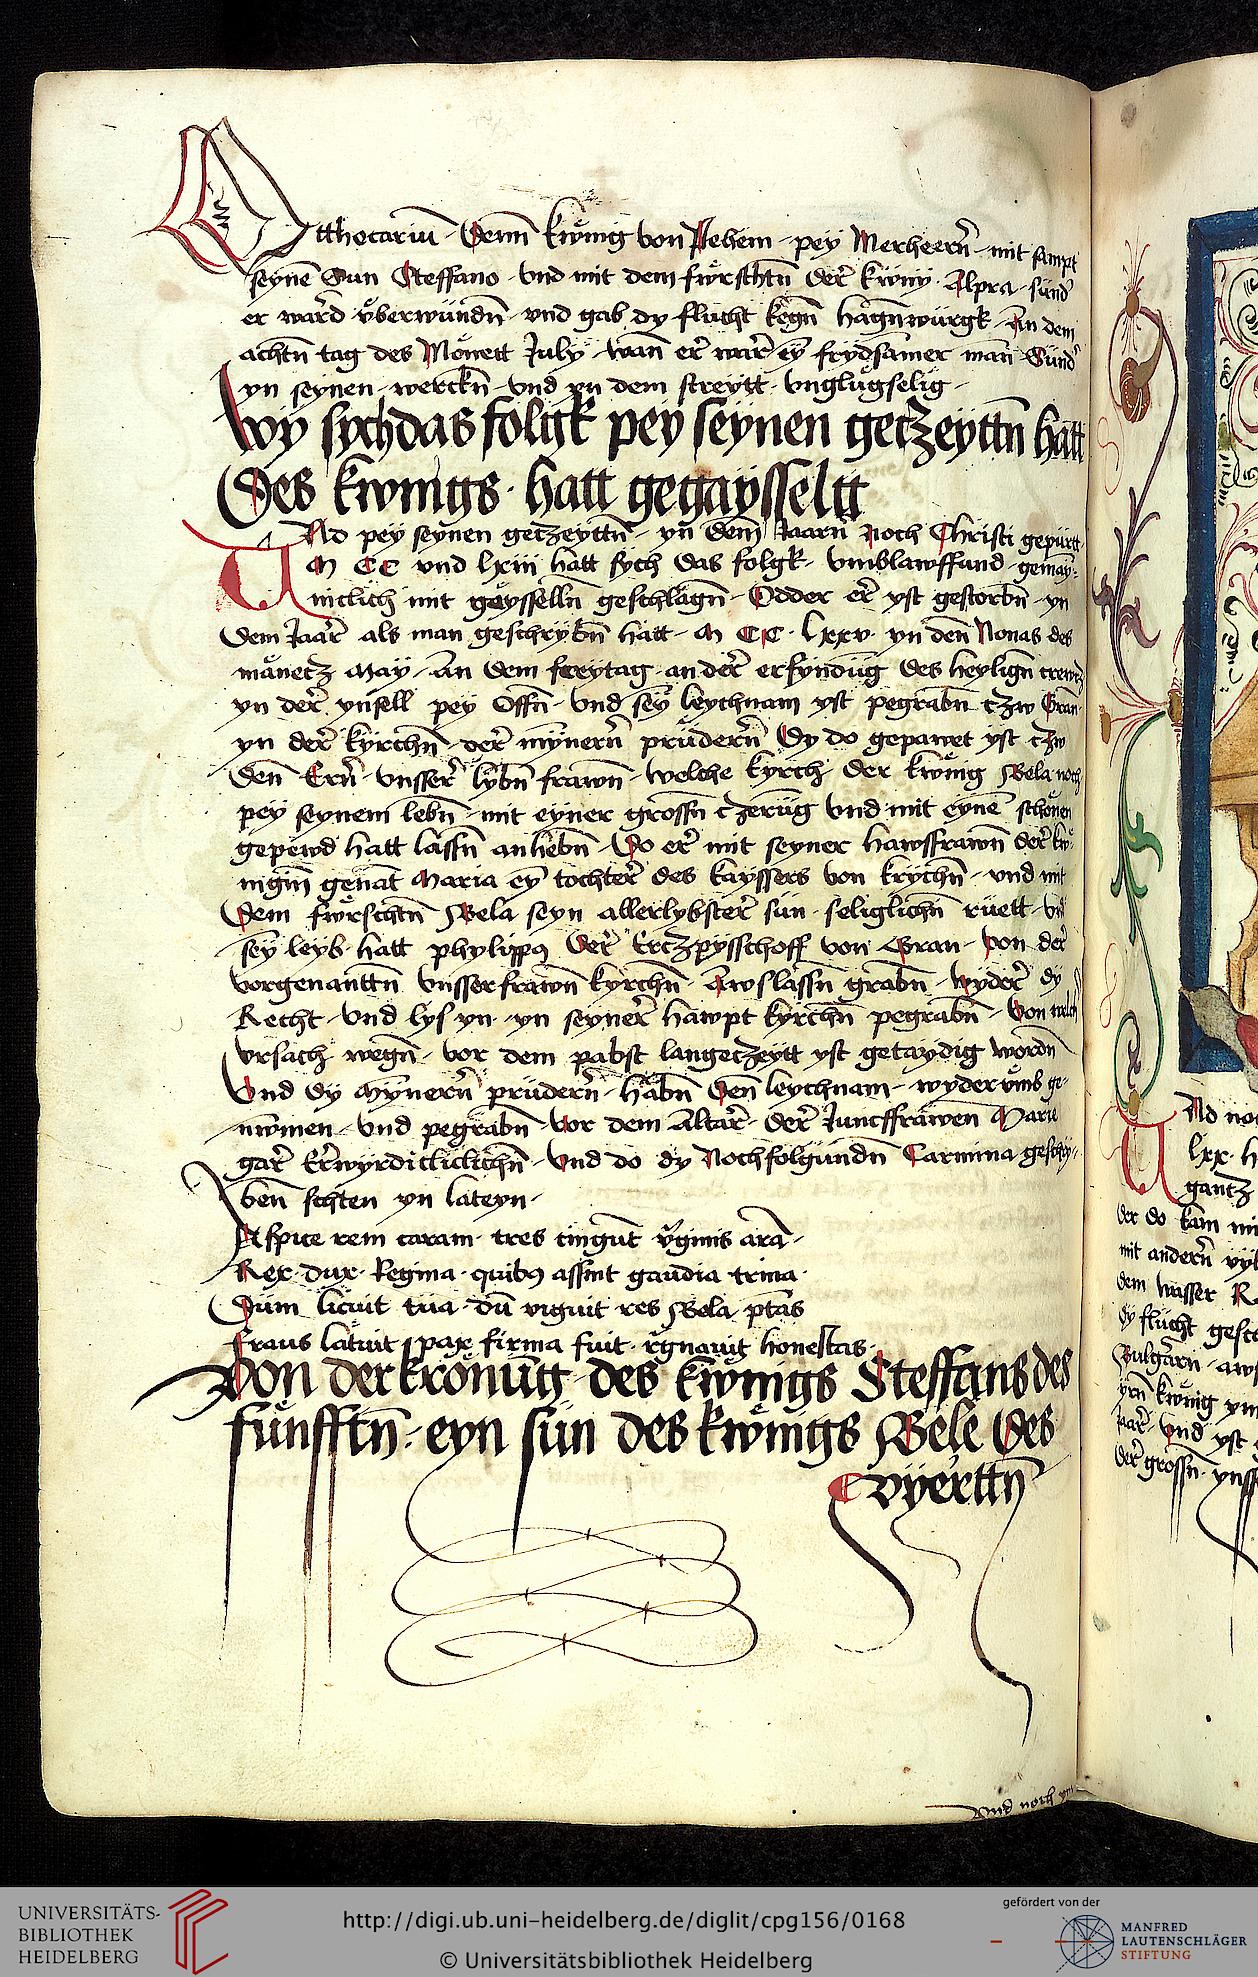 Otthocariū · Denn kwͤnig von Pehem · pey Merheern̄ · mit sampt
seynē Sun Steffano · Vnd mit dem fwͤrschtn̄ der̄ kwny · Alpra · sund̄
er war̄d vͤberwundn̄ · vnd gab dy flucht kegn̄ hagn̄wurgk · An dem
achtn̄ tag des Monett July · wan̄ er̄ war̄ eȳ frydsamer man̄ Sund̄
yn seynen · werckn̄ · Vnd yn dem streytt · vngluͤgselig ·
Wy sych das folgk pey seynen getzeyttn̄ hatt
Des kwnigs · hatt gegaysseltt
Vnd pey seynen getzeyttn̄ · yn̄ dem Jaarn̄ noch Christi gepurtt
M CC vnd lxiii hatt sych das folgk · vmblawffund · gemay:
niclich mit gaysselln̄ geschlagn̄ · Odder er̄ yst gestorbn̄ · yn
Dem Jaar̄ als man geschrybn̄ hatt · M CC · lxxv · yn den̄ Nonas des
manetz May · An dem freytag · an der̄ erfyndu̅g des heylign̄ crewtz
yn der̄ ynsell pey Offn̄ · Vnd seȳ leychnam yst pegrabn̄ tzw Gran
yn der̄ kyrchn̄ · der̄ mynnern̄ prudern̄ Dy do gepawet yst tzw
Den̄ Ern̄ · vnsser̄ lybn̄ frawn̄ · welche kyrch der kwͤnig Bela noch
pey seynem lebn̄ · mit eyner grossn̄ tzerūg Vnd mit eynē schönen
gepewd hatt lassn̄ anhebn̄ · Do er̄ mit seyner hawsfrawn̄ der̄ kwͤ:
nigin̄ genāt Maria eȳ tochter̄ des kayssers von krychn̄ · vnd mit
Dem fwͤrschtn̄ Bela seyn allerlybster̄ sun · seliglichn̄ ruett · Vn̄
seȳ leyb · hatt phylippꝰ Der̄ Ertzpysschoff von Gran · von der̄
vorgenanttn̄ vnsser frawn̄ kyrchn̄ · Awslassn̄ grabn̄ · wyder̄ dy
Recht · Vnd lys yn · yn seyner̄ hawpt kyrchn̄ pegrabn̄ · Von welch
vrsach wegn̄ · vor dem pabst langetzeytt yst getaydig wordn̄
Vnd dy Mynnern̄ prudern̄ · habn̄ Den̄ leychnam · wyder vmb ge:
nwmen · Vnd pegrabn̄ Vor dem Altar̄ · Der̄ Juncffrawen Marie
gar̄ Er̄wyrdicliclichn̄ · Vnd do dy Nochfolgundn̄ Carmina geschry:
ben̄ schten yn lateyn ·
Aspice rem caram · tres cingūt v̄ginis arā ·
Rex · dux · Regina · quibꝰ assint gaudia trina ·
Dum licuit tua · dū viguit res Bela · ptās
Fraus latuit · pax firma fuit · r̄gnauit honestas ·
Von der kronūg · des kwͤnigs Steffans des
funfftn̄ · eyn sun des kwͤnigs Bele Des
vyerttn̄
Vnd noch
Vnd noc
lxx · h
gantz
der do kam mi
mit andern̄ vyl
dem wasser R
dy flucht gesch
Bulgarn · aws
yrn̄ kwͤnig ym
Jaar̄ · Vnd yst
der̄ grossn̄ · ynss
UNIVERSITÄTS-
BIBLIOTHEK
HEIDELBERG
http://digi.ub.uni-heidelberg.de/diglit/cpg156/0168
© Universitätsbibliothek Heidelberg
gefördert von der
MANFRED
LAUTENSCHLÄGER
STIFTUNG